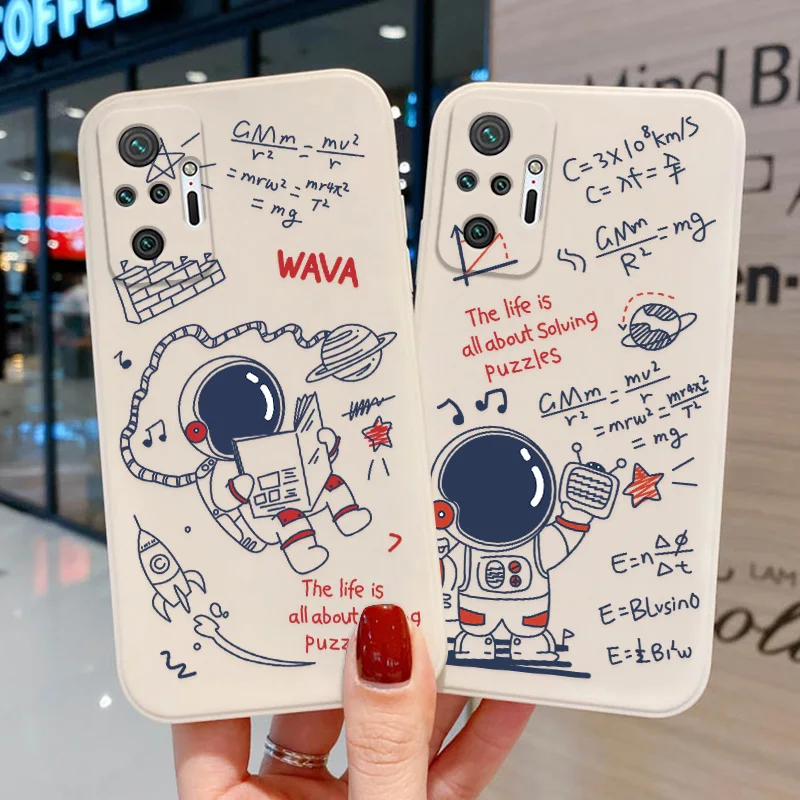 COFFEE
Mind B
en-
LAM
ol
GMm/r² = mv²/r
= mrw² = mr4π²/T²
= mg
WAVA
The life is
all about g
puzz
C=3×10⁸km/s
C=λf=
GMm/R²=mg
The life is
all about Solving
puzzles
GMm/r² = mv²/r
=mrw²=mr4π²/T²
=mg
E=nΔφ/Δt
E=BLvsinθ
E=½Bl²w